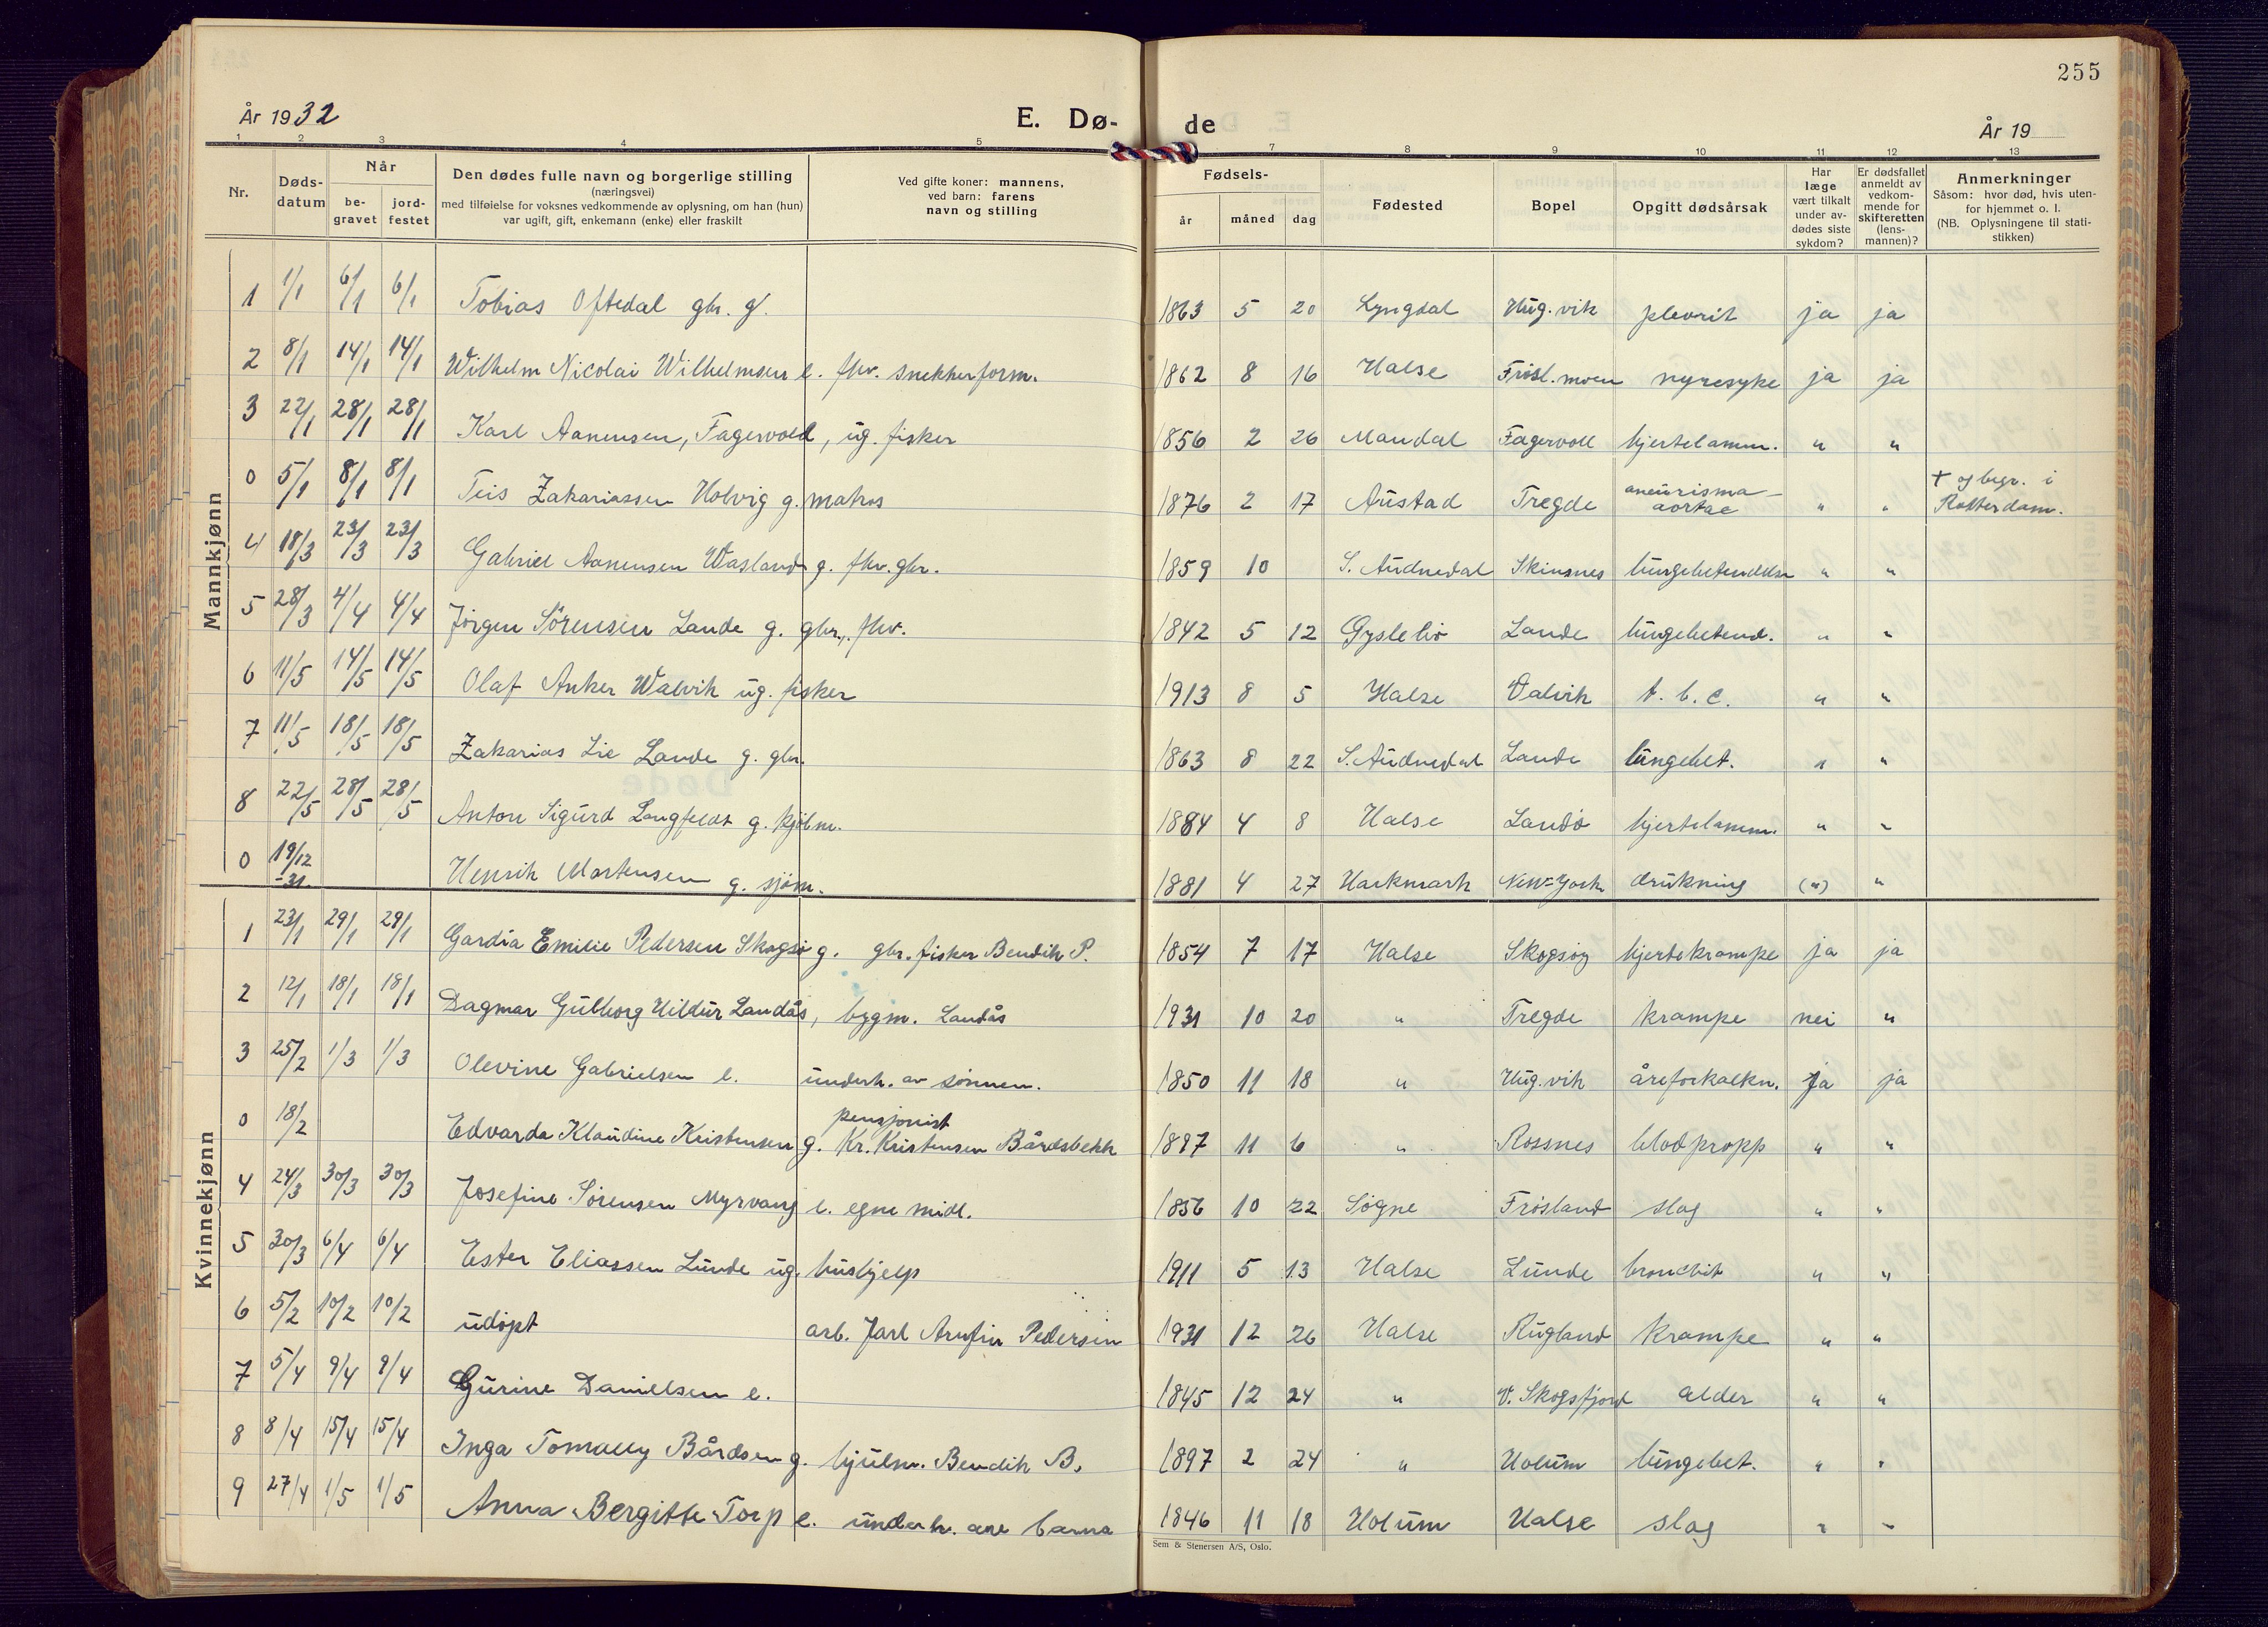 255
År 1932
E. Dø-
de
År 19
1 2 3 4 5 7 8 9 10 11 12 13
Nr.
Døds-
datum
Når
be-
gravet
jord-
festet
Den dødes fulle navn og borgerlige stilling
(næringsvei)
med tilføielse for voksnes vedkommende av oplysning, om han (hun)
var ugift, gift, enkemann (enke) eller fraskilt
Ved gifte koner: mannens,
ved barn: farens
navn og stilling
Fødsels-
år
måned
dag
Fødested
Bopel
Opgitt dødsårsak
Har
læge
vært tilkalt
under av-
dødes siste
sykdom?
Er dødsfallet
anmeldt av
vedkom-
mende for
skifteretten
(lens-
mannen)?
Anmerkninger
Såsom: hvor død, hvis uten-
for hjemmet o. l.
(NB. Oplysningene til stati-
stikken)
Mannkjønn
1 1/1 6/1 6/1 Tobias Oftedal gbr. g. 1863 5 20 Lyngdal Hug.vik plevrit ja ja
2 8/1 14/1 14/1 Wilhelm Nicolai Wilhelmsen e. fhv. snekkerform. 1862 8 16 Halse Frøsl.moen nyresyke ja ja
3 22/1 28/1 28/1 Karl Aanensen, Fagervold, ug. fisker 1856 2 26 Mandal Fagervoll hjertelamm. " "
0 5/1 8/1 8/1 Teis Zakariassen Holvig g. matros 1876 2 17 Austad Tregde aneurisma aortae " " + og begr. i Rotterdam.
4 18/3 23/3 23/3 Gabriel Aanensen Wasland g. fhv. gbr. 1859 10 S. Audnedal Skinsnes lungebetendelse " "
5 28/3 4/4 4/4 Jørgen Sørensen Lande g. gbr., fhv. 1842 5 12 Gyslebø Lande lungebetend. " "
6 11/5 14/5 14/5 Olaf Anker Walvik ug. fisker 1913 8 5 Halse Valvik t. b. c. " "
7 11/5 18/5 18/5 Zakarias Lie Lande g. gbr. 1863 8 22 S. Audnedal Lande lungebet. " "
8 22/5 28/5 28/5 Anton Sigurd Langfeldt g. kjøbm. 1884 4 8 Halse Landø hjertelamm. " "
0 19/12 -31. Henrik Mortensen g. sjøm. 1881 4 27 Harkmark New-York drukning (") "
Kvinnekjønn
1 23/1 29/1 29/1 Gardia Emilie Pedersen Skogsø g. gbr. fisker Bendik P. 1854 7 17 Halse Skogsøy hjertekrampe ja ja
2 12/1 18/1 18/1 Dagmar Gulborg Hildur Landås, bygm. Landås 1931 10 20 " Tregde krampe nei "
3 25/2 1/3 1/3 Olevine Gabrielsen e. underh. av sønnen. 1850 11 18 " Hug.vik åreforkalkn. ja ja
0 18/2 Edvarda Klaudine Kristensen g. pensjonist Kr. Kristensen Bårdsbekk 1897 11 6 " Rossnes blodpropp " "
4 24/3 30/3 30/3 Josefine Sørensen Myrvang e. egne midl. 1856 10 22 Søgne Frøsland slag " "
5 30/3 6/4 6/4 Ester Eliassen Lunde ug. hushjelp 1911 5 13 Halse Lunde bronchit " "
6 5/2 10/2 10/2 udøpt arb. Jarl Arnfin Pedersen 1931 12 26 Halse Rugland krampe " "
7 5/4 9/4 9/4 Gurine Danielsen e. 1845 12 24 " V. Skogsfjord alder " "
8 8/4 15/4 15/4 Inga Tomally Bårdsen g. hjulm. Bendik B. 1897 2 24 " Holum lungebet. " "
9 27/4 1/5 1/5 Anna Bergitte Torp e. underh. av barna 1846 11 18 Holum Halse slag " "
Sem & Stenersen A/S, Oslo.